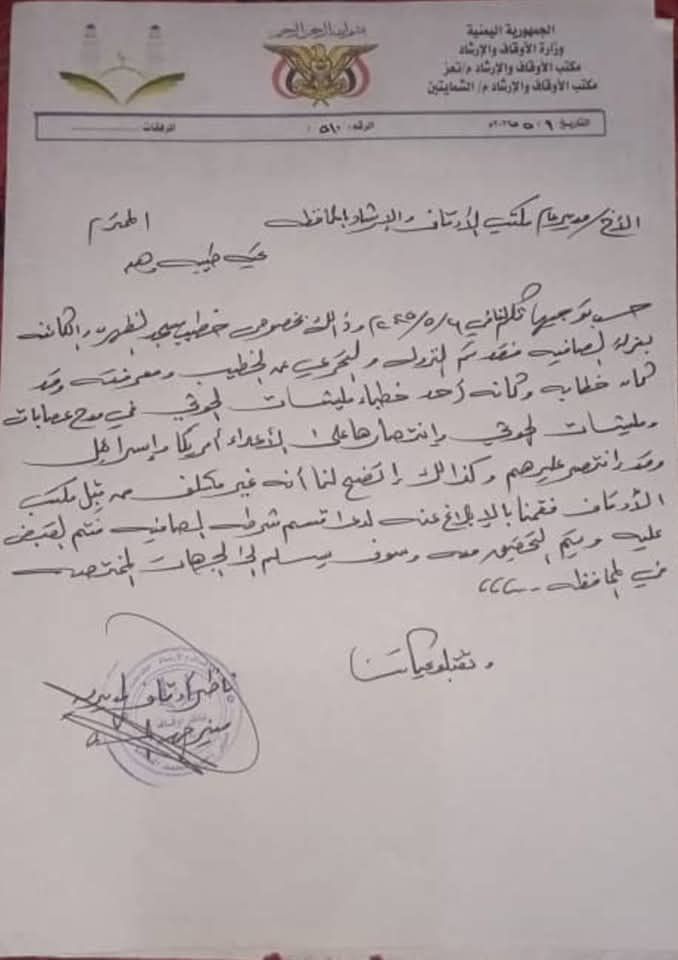 الجمهورية اليمنية
وزارة الأوقاف والإرشاد
مكتب الأوقاف والإرشاد م/تعز
مكتب الأوقاف والإرشاد م/ الشمايتين
بسم الله الرحمن الرحيم
التاريخ: ٩ / ٥ / ٢٠٢٥م الرقم: ٥١٠ المرفقات:
الأخ/ مدير عام مكتب الأوقاف والإرشاد بالمحافظة المحترم
تحية طيبة وبعد
حسب توجيهاتكم لنا في ٢٠٢٥/٥/٦ وذالك بخصوص خطيب مسجد والكائن
بعزلة فقد تم النزول والتحري عن الخطيب ومعرفته وقد
كان خطابه وكأنه أحد خطباء مليشات الحوثي في مدح عصابات
ومليشات الحوثي وإنتصارها على الأعداء أمريكا وإسرائيل
وقد إنتصر عليهم وكذالك إتضح لنا أنه غير مكلف من قبل مكتب
الأوقاف فقمنا بالإبلاغ عنه لدى قسم شرطة فتم القبض
عليه ويتم التحقيق معه وسوف يسلم إلى الجهات المختصة
في المحافظة
وتقبلو تحياتنا
ناظر أوقاف المديرية
منير